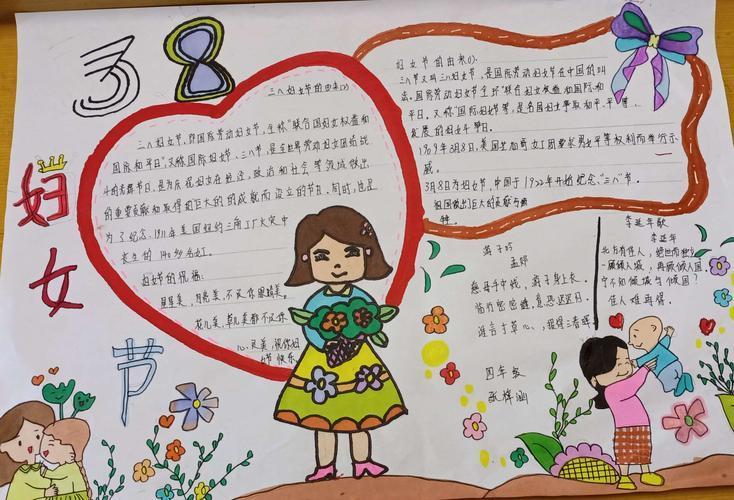 38
妇
女
节
三八妇女节的由来(2)
三八妇女节,即国际劳动妇女节,全称"联合国妇女权益和
国际和平日",又称国际妇女节、三八节,是全世界劳动妇女团结战
斗的光辉节日,是为庆祝妇女在经济,政治和社会等领域做出
的重要贡献和取得的巨大的的成就而设立的节日。同时,也是
为了纪念,1911年美国纽约三角工厂火灾中
丧生的140多名女工。
妇女节的祝福:
星星美,月亮美,不及你眼睛美。
花儿美,草儿美都不及你
心灵美,祝你妇
女节快乐
妇女节的由来(1).
三八节又叫三八妇女节,是国际劳动妇女节在中国的叫
法,国际劳动妇女节全称"联合妇女权益和国际和
平日,又称"国际妇女节等,是各国妇女争取和平、平等
发展的妇女节日。
1909年3月8日,美国芝加哥女工团要求男女平等权利而举行示
威。
3月8日为妇女节,中国于1922年开始纪念"三八"节。
祖国做出巨大的贡献与
游子吟
孟郊
慈母手中线,游子身上衣。
临行密密缝,意恐迟迟归。
谁言寸草心,报得三春晖
四年级
李延年歌
李延年
北方有佳人,绝世而独立
一顾倾人城,再顾倾人国
宁不知倾城与倾国?
佳人难再得。